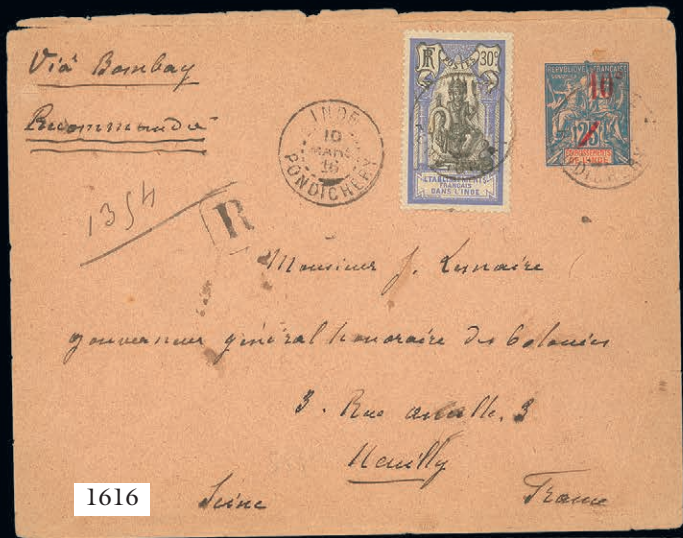 Via Bombay
Recommandé
1354
R
INDE
10
MARS
16
PONDICHERY
RF POSTES 30c
ETABLISSEMENTS
FRANÇAIS
DANS L'INDE
REPUBLIQUE FRANÇAISE
10
25
Monsieur J. Lemaire
gouverneur général honoraire des Colonies
3. Rue 3
Neuilly
Seine France
1616